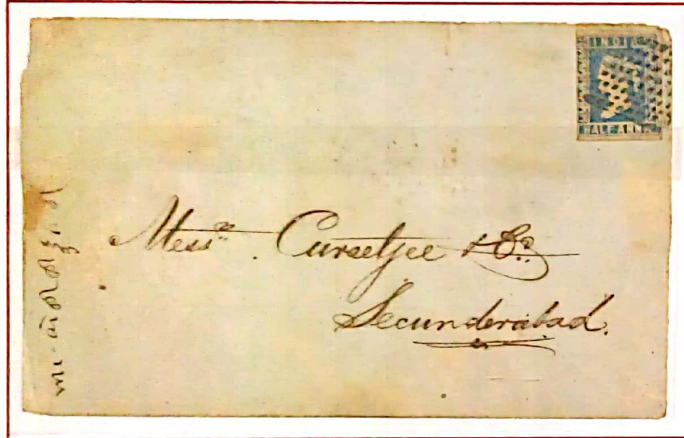 INDIA
HALF ANNA
Messrs. Cursetjee & Co.
Secunderabad.